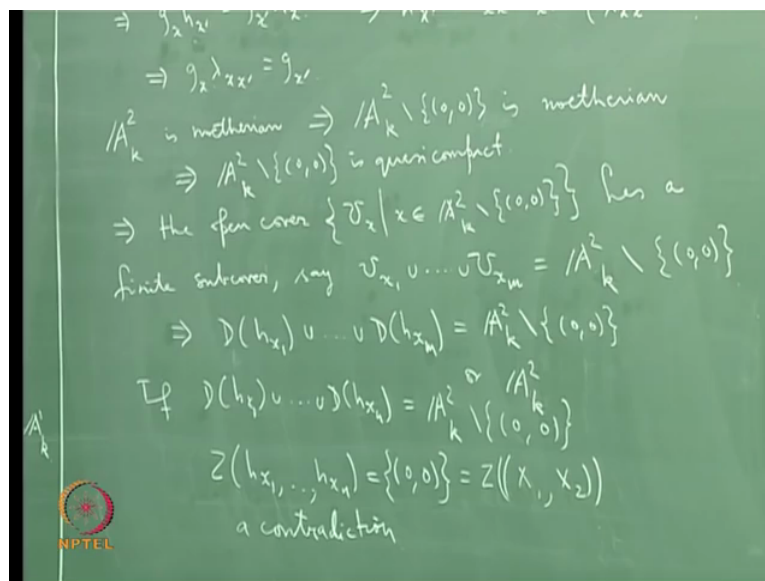 ⇒ g_x λ_{xx'} = g_{x'}
𝔸²_k is noetherian ⇒ 𝔸²_k \ {(0,0)} is noetherian
⇒ 𝔸²_k \ {(0,0)} is quasicompact.
⇒ the open cover {U_x | x ∈ 𝔸²_k \ {(0,0)}} has a
finite subcover, say U_{x_1} ∪ ... ∪ U_{x_m} = 𝔸²_k \ {(0,0)}
⇒ D(h_{x_1}) ∪ ... ∪ D(h_{x_m}) = 𝔸²_k \ {(0,0)}
or 𝔸²_k
If D(h_{x_1}) ∪ ... ∪ D(h_{x_n}) = 𝔸²_k \ {(0,0)}
Z(h_{x_1}, .., h_{x_n}) = {(0,0)} = Z((X_1, X_2))
a contradiction
𝔸¹_k
NPTEL